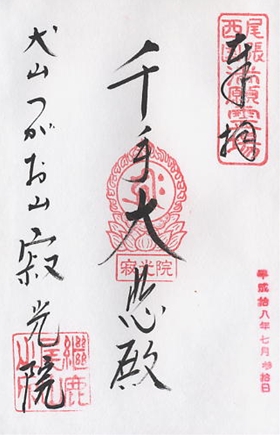 奉拝
平成拾八年七月参拾日
千手大悲殿
寂光院
犬山つがお山寂光院
継鹿尾山